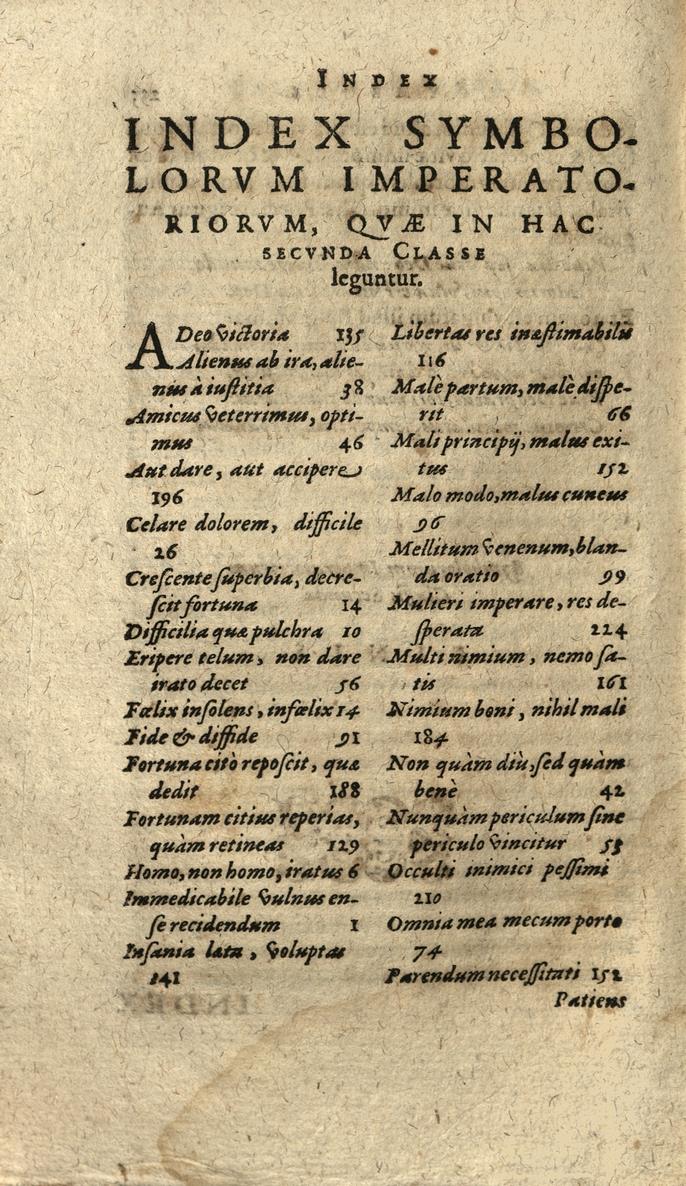 INDEX
INDEX SYMBO-
LORVM IMPERATO-
RIORVM, QVÆ IN HAC
SECVNDA CLASSE
leguntur.
A Deo victoria 135
Alienus ab ira, alie-
nus à iustitia 38
Amicus veterrimus, opti-
mus 46
Aut dare, aut accipere
196
Celare dolorem, difficile
26
Crescente superbia, decre-
scit fortuna 14
Difficilia quæ pulchra 10
Eripere telum, non dare
irato decet 56
Fœlix insolens, infœlix 14
Fide & diffide 91
Fortuna citò reposcit, quæ
dedit 188
Fortunam citius reperias,
quàm retineas 129
Homo, non homo, iratus 6
Immedicabile vulnus en-
se recidendum 1
Insania læta, voluptas
141
Libertas res inæstimabilis
116
Malè partum, malè dispe-
rit 66
Mali principij, malus exi-
tus 152
Malo modo, malus cuneus
96
Mellitum venenum, blan-
da oratio 99
Mulieri imperare, res de-
sperata 224
Multi nimium, nemo sa-
tis 161
Nimium boni, nihil mali
184
Non quàm diù, sed quàm
benè 42
Nunquàm periculum sine
periculo vincitur 53
Occulti inimici pessimi
210
Omnia mea mecum porto
74
Parendum necessitati 152
Patiens